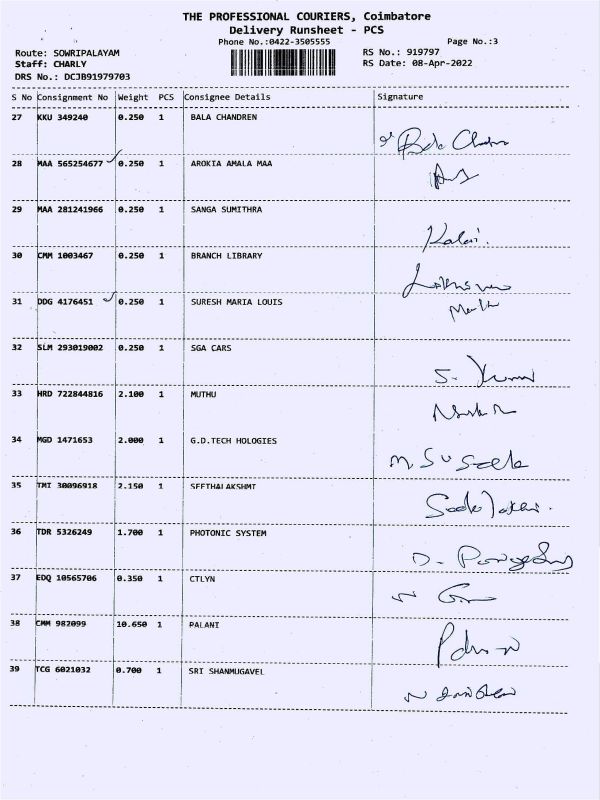 THE PROFESSIONAL COURIERS, Coimbatore
Delivery Runsheet - PCS
Phone No.:0422-3505555 Page No.:3
Route: SOWRIPALAYAM RS No.: 919797
Staff: CHARLY RS Date: 08-Apr-2022
DRS No.: DCJB91979703
S No Consignment No Weight PCS Consignee Details Signature
27 KKU 349240 0.250 1 BALA CHANDREN
Bala Chandren
28 MAA 565254677 0.250 1 AROKIA AMALA MAA
29 MAA 281241966 0.250 1 SANGA SUMITHRA
Kalai.
30 CMM 1003467 0.250 1 BRANCH LIBRARY
31 DDG 4176451 0.250 1 SURESH MARIA LOUIS
32 SLM 293019002 0.250 1 SGA CARS
33 HRD 722844816 2.100 1 MUTHU
34 MGD 1471653 2.000 1 G.D.TECH HOLOGIES
35 TMI 30096918 2.150 1 SEETHALAKSHMI
36 TDR 5326249 1.700 1 PHOTONIC SYSTEM
37 EDQ 10565706 0.350 1 CTLYN
38 CMM 982099 10.650 1 PALANI
39 TCG 6021032 0.700 1 SRI SHANMUGAVEL